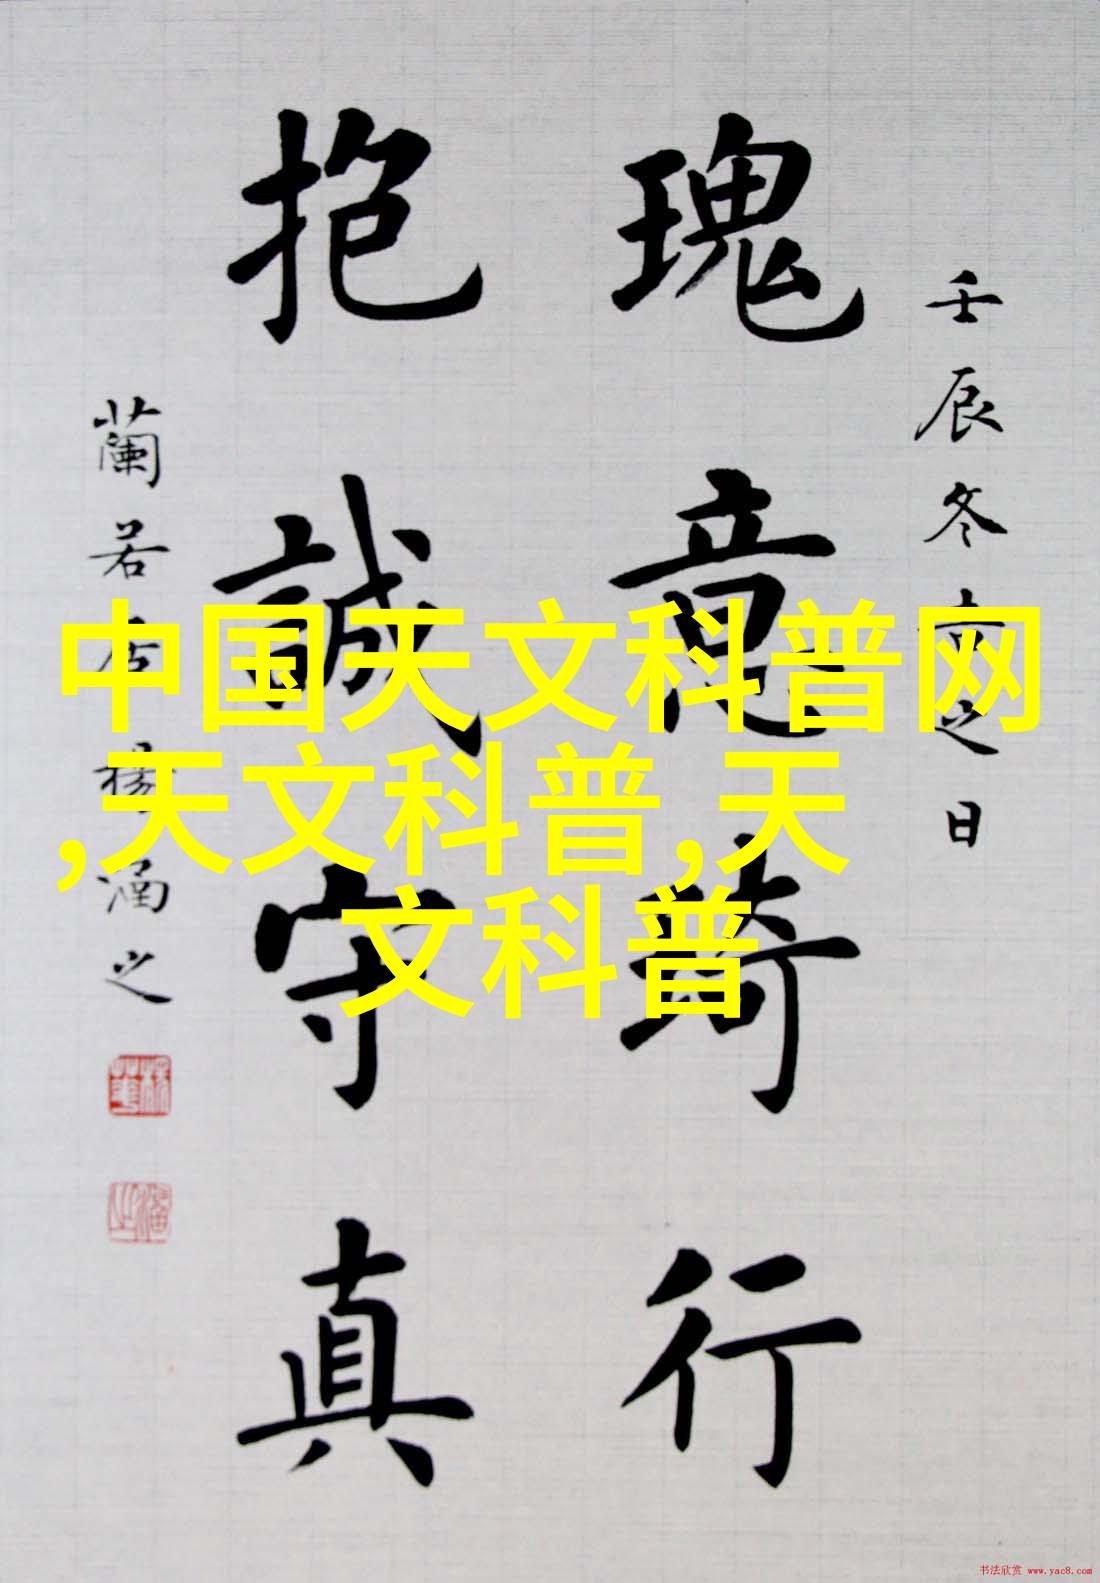 壬辰冬之日
瑰意琦行
抱誠守真
蘭若楊涵之
中国天文科普网
,天文科普,天
文科普
书法欣赏 www.yac8.com